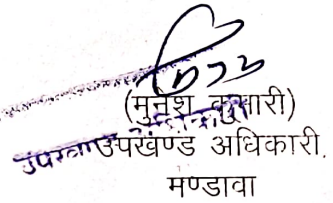 (मुनेश कुमारी)
उपखण्ड अधिकारी.
मण्डावा